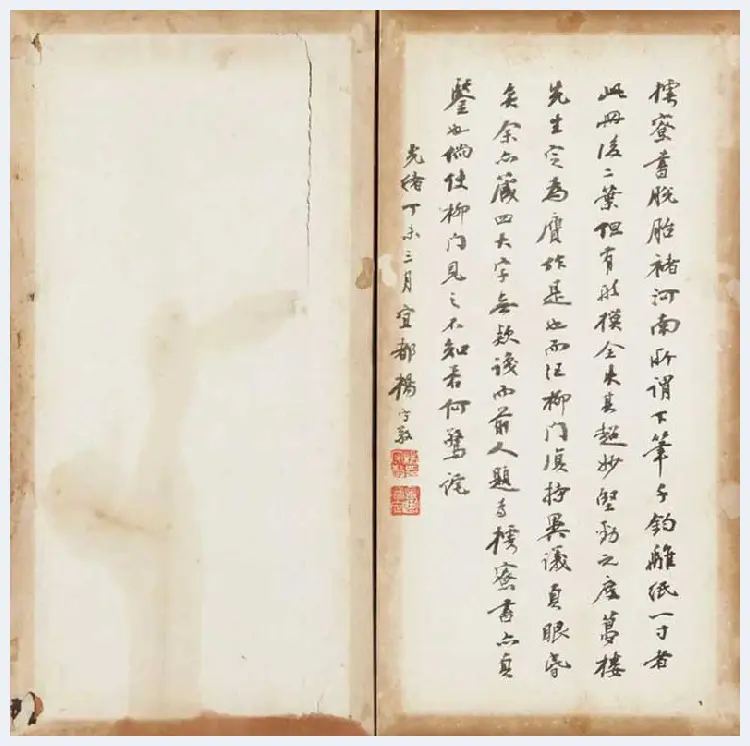 樗寮書脫胎褚河南所謂下筆千鈞離紙一寸者
此冊後二葉但有形模全失其超妙堅勁之度蒿樓
先生定為贗作是也而汪柳門復持異議真眼昏
矣余亦藏四大字無款識而前人題為樗寮書亦真
鑒也倘使柳門見之不知若何驚詫
光緒丁未三月宜都楊守敬